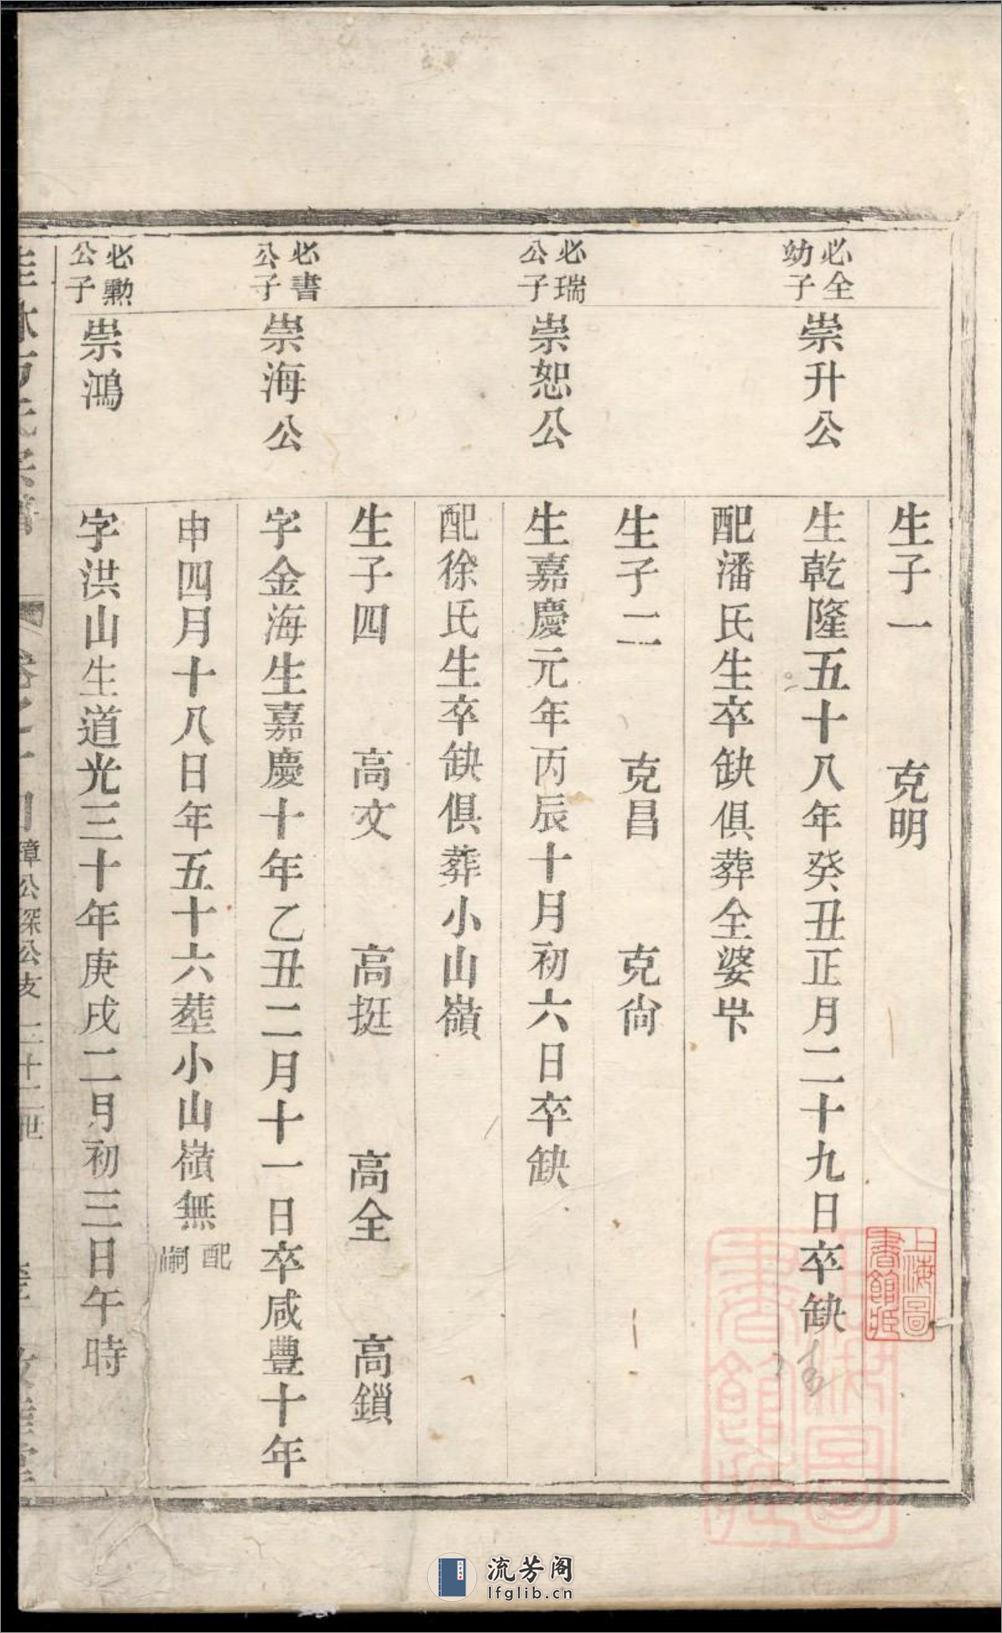 生子一 克明
必全幼子
崇升公
生乾隆五十八年癸丑正月二十九日卒缺
配潘氏生卒缺俱葬全婆圤
生子二 克昌 克尙
必瑞公子
崇恕公
生嘉慶元年丙辰十月初六日卒缺
配徐氏生卒缺俱葬小山嶺
生子四 高文 高挺 高全 高鎖
必書公子
崇海公
字金海生嘉慶十年乙丑二月十一日卒咸豐十年
申四月十八日年五十六塟小山嶺無配嗣
必勳公子
崇鴻
字洪山生道光三十年庚戌二月初三日午時
璋公琛公支 二十二世
上海圖書館藏
流芳阁
lfglib.cn